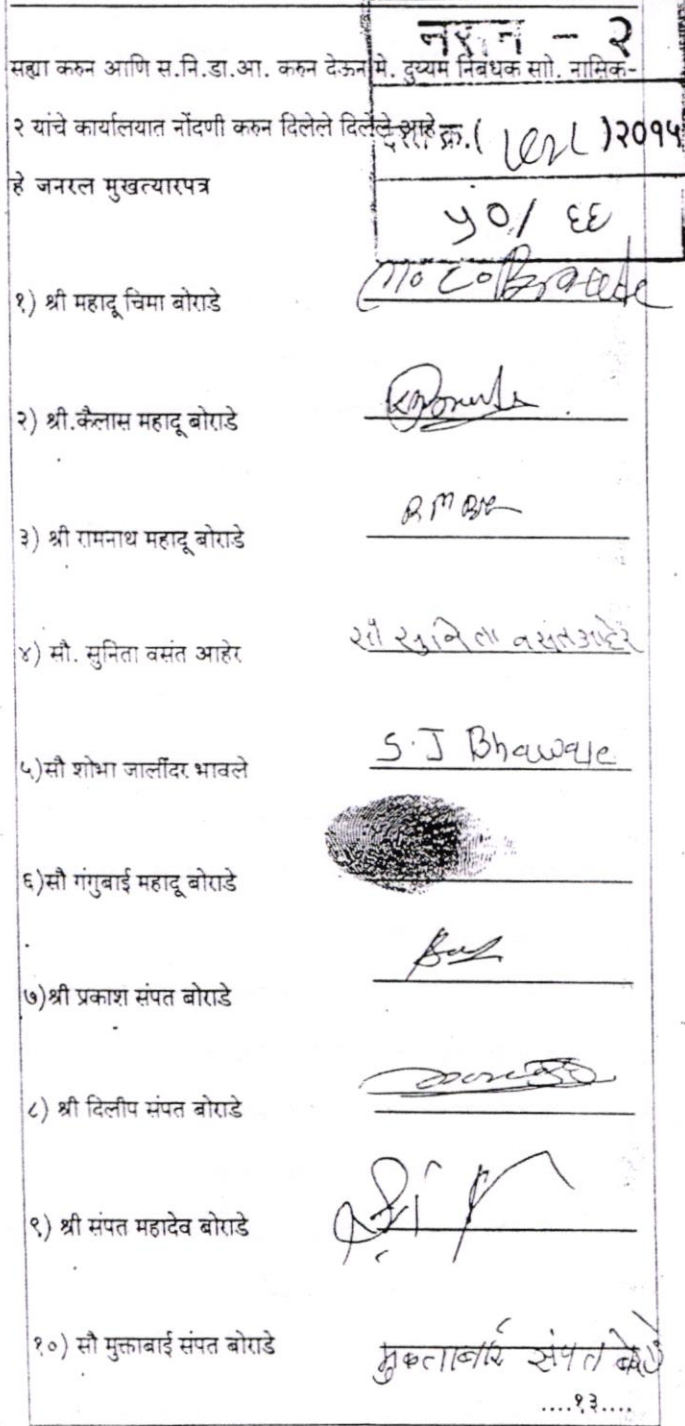 नसन - २
सह्या करुन आणि स.नि.डा.आ. करुन देऊन मे. दुय्यम निबंधक साो. नासिक-
२ यांचे कार्यालयात नोंदणी करुन दिलेले दिलेले आहे
दस्त क्र.( )२०१५
हे जनरल मुखत्यारपत्र
५०/ ६६
१) श्री महादू चिमा बोराडे
२) श्री.कैलास महादू बोराडे
३) श्री रामनाथ महादू बोराडे
R M
४) सौ. सुनिता वसंत आहेर
सौ सुनिता वसंत आहेर
५)सौ शोभा जालींदर भावले
S.J Bhawale
६)सौ गंगुबाई महादू बोराडे
७)श्री प्रकाश संपत बोराडे
८) श्री दिलीप संपत बोराडे
९) श्री संपत महादेव बोराडे
१०) सौ मुक्ताबाई संपत बोराडे
मुकताबाई संपत बोराडे
....१३....